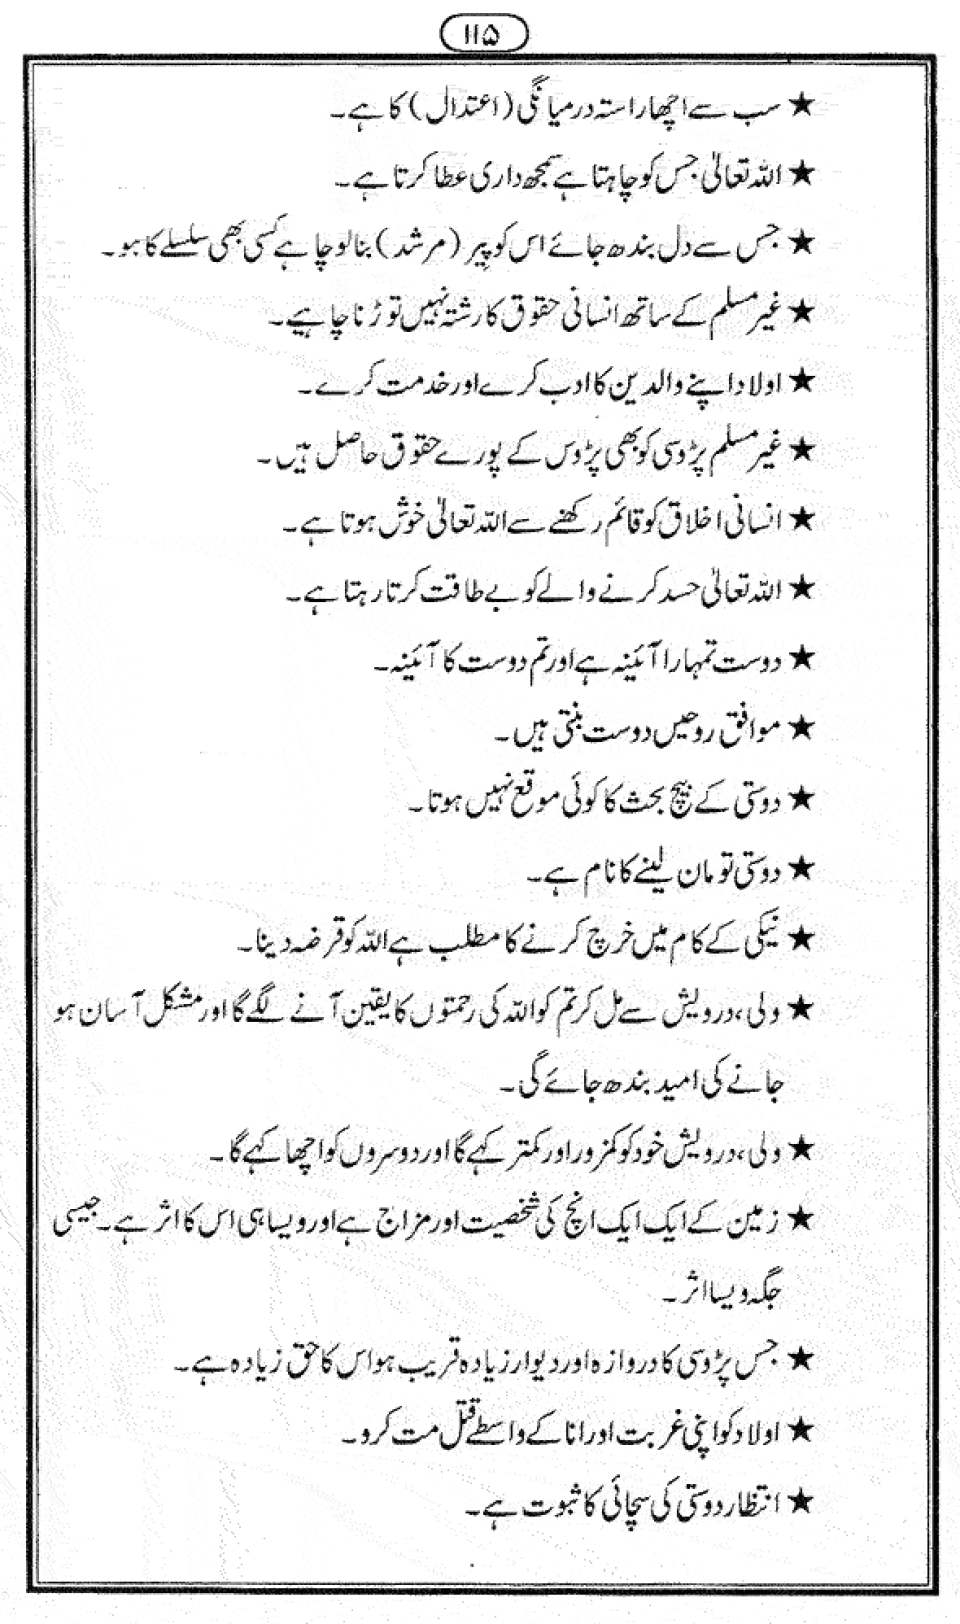 ۱۱۵
★ سب سے اچھا راستہ درمیانگی (اعتدال) کا ہے۔
★ اللہ تعالیٰ جس کو چاہتا ہے سمجھ داری عطا کرتا ہے۔
★ جس سے دل بندھ جائے اس کو پیر (مرشد) بنا لو چاہے کسی بھی سلسلے کا ہو۔
★ غیر مسلم کے ساتھ انسانی حقوق کا رشتہ نہیں توڑنا چاہیے۔
★ اولاد اپنے والدین کا ادب کرے اور خدمت کرے۔
★ غیر مسلم پڑوسی کو بھی پڑوس کے پورے حقوق حاصل ہیں۔
★ انسانی اخلاق کو قائم رکھنے سے اللہ تعالیٰ خوش ہوتا ہے۔
★ اللہ تعالیٰ حسد کرنے والے کو بے طاقت کرتا رہتا ہے۔
★ دوست تمہارا آئینہ ہے اور تم دوست کا آئینہ۔
★ موافق روحیں دوست بنتی ہیں۔
★ دوستی کے بیچ بحث کا کوئی موقع نہیں ہوتا۔
★ دوستی تو مان لینے کا نام ہے۔
★ نیکی کے کام میں خرچ کرنے کا مطلب ہے اللہ کو قرضہ دینا۔
★ ولی، درویش سے مل کر تم کو اللہ کی رحمتوں کا یقین آنے لگے گا اور مشکل آسان ہو
جانے کی امید بندھ جائے گی۔
★ ولی، درویش خود کو کمزور اور کمتر کہے گا اور دوسروں کو اچھا کہے گا۔
★ زمین کے ایک ایک انچ کی شخصیت اور مزاج ہے اور ویسا ہی اس کا اثر ہے۔ جیسی
جگہ ویسا اثر۔
★ جس پڑوسی کا دروازہ اور دیوار زیادہ قریب ہو اس کا حق زیادہ ہے۔
★ اولاد کو اپنی غربت اور انا کے واسطے قتل مت کرو۔
★ انتظار دوستی کی سچائی کا ثبوت ہے۔